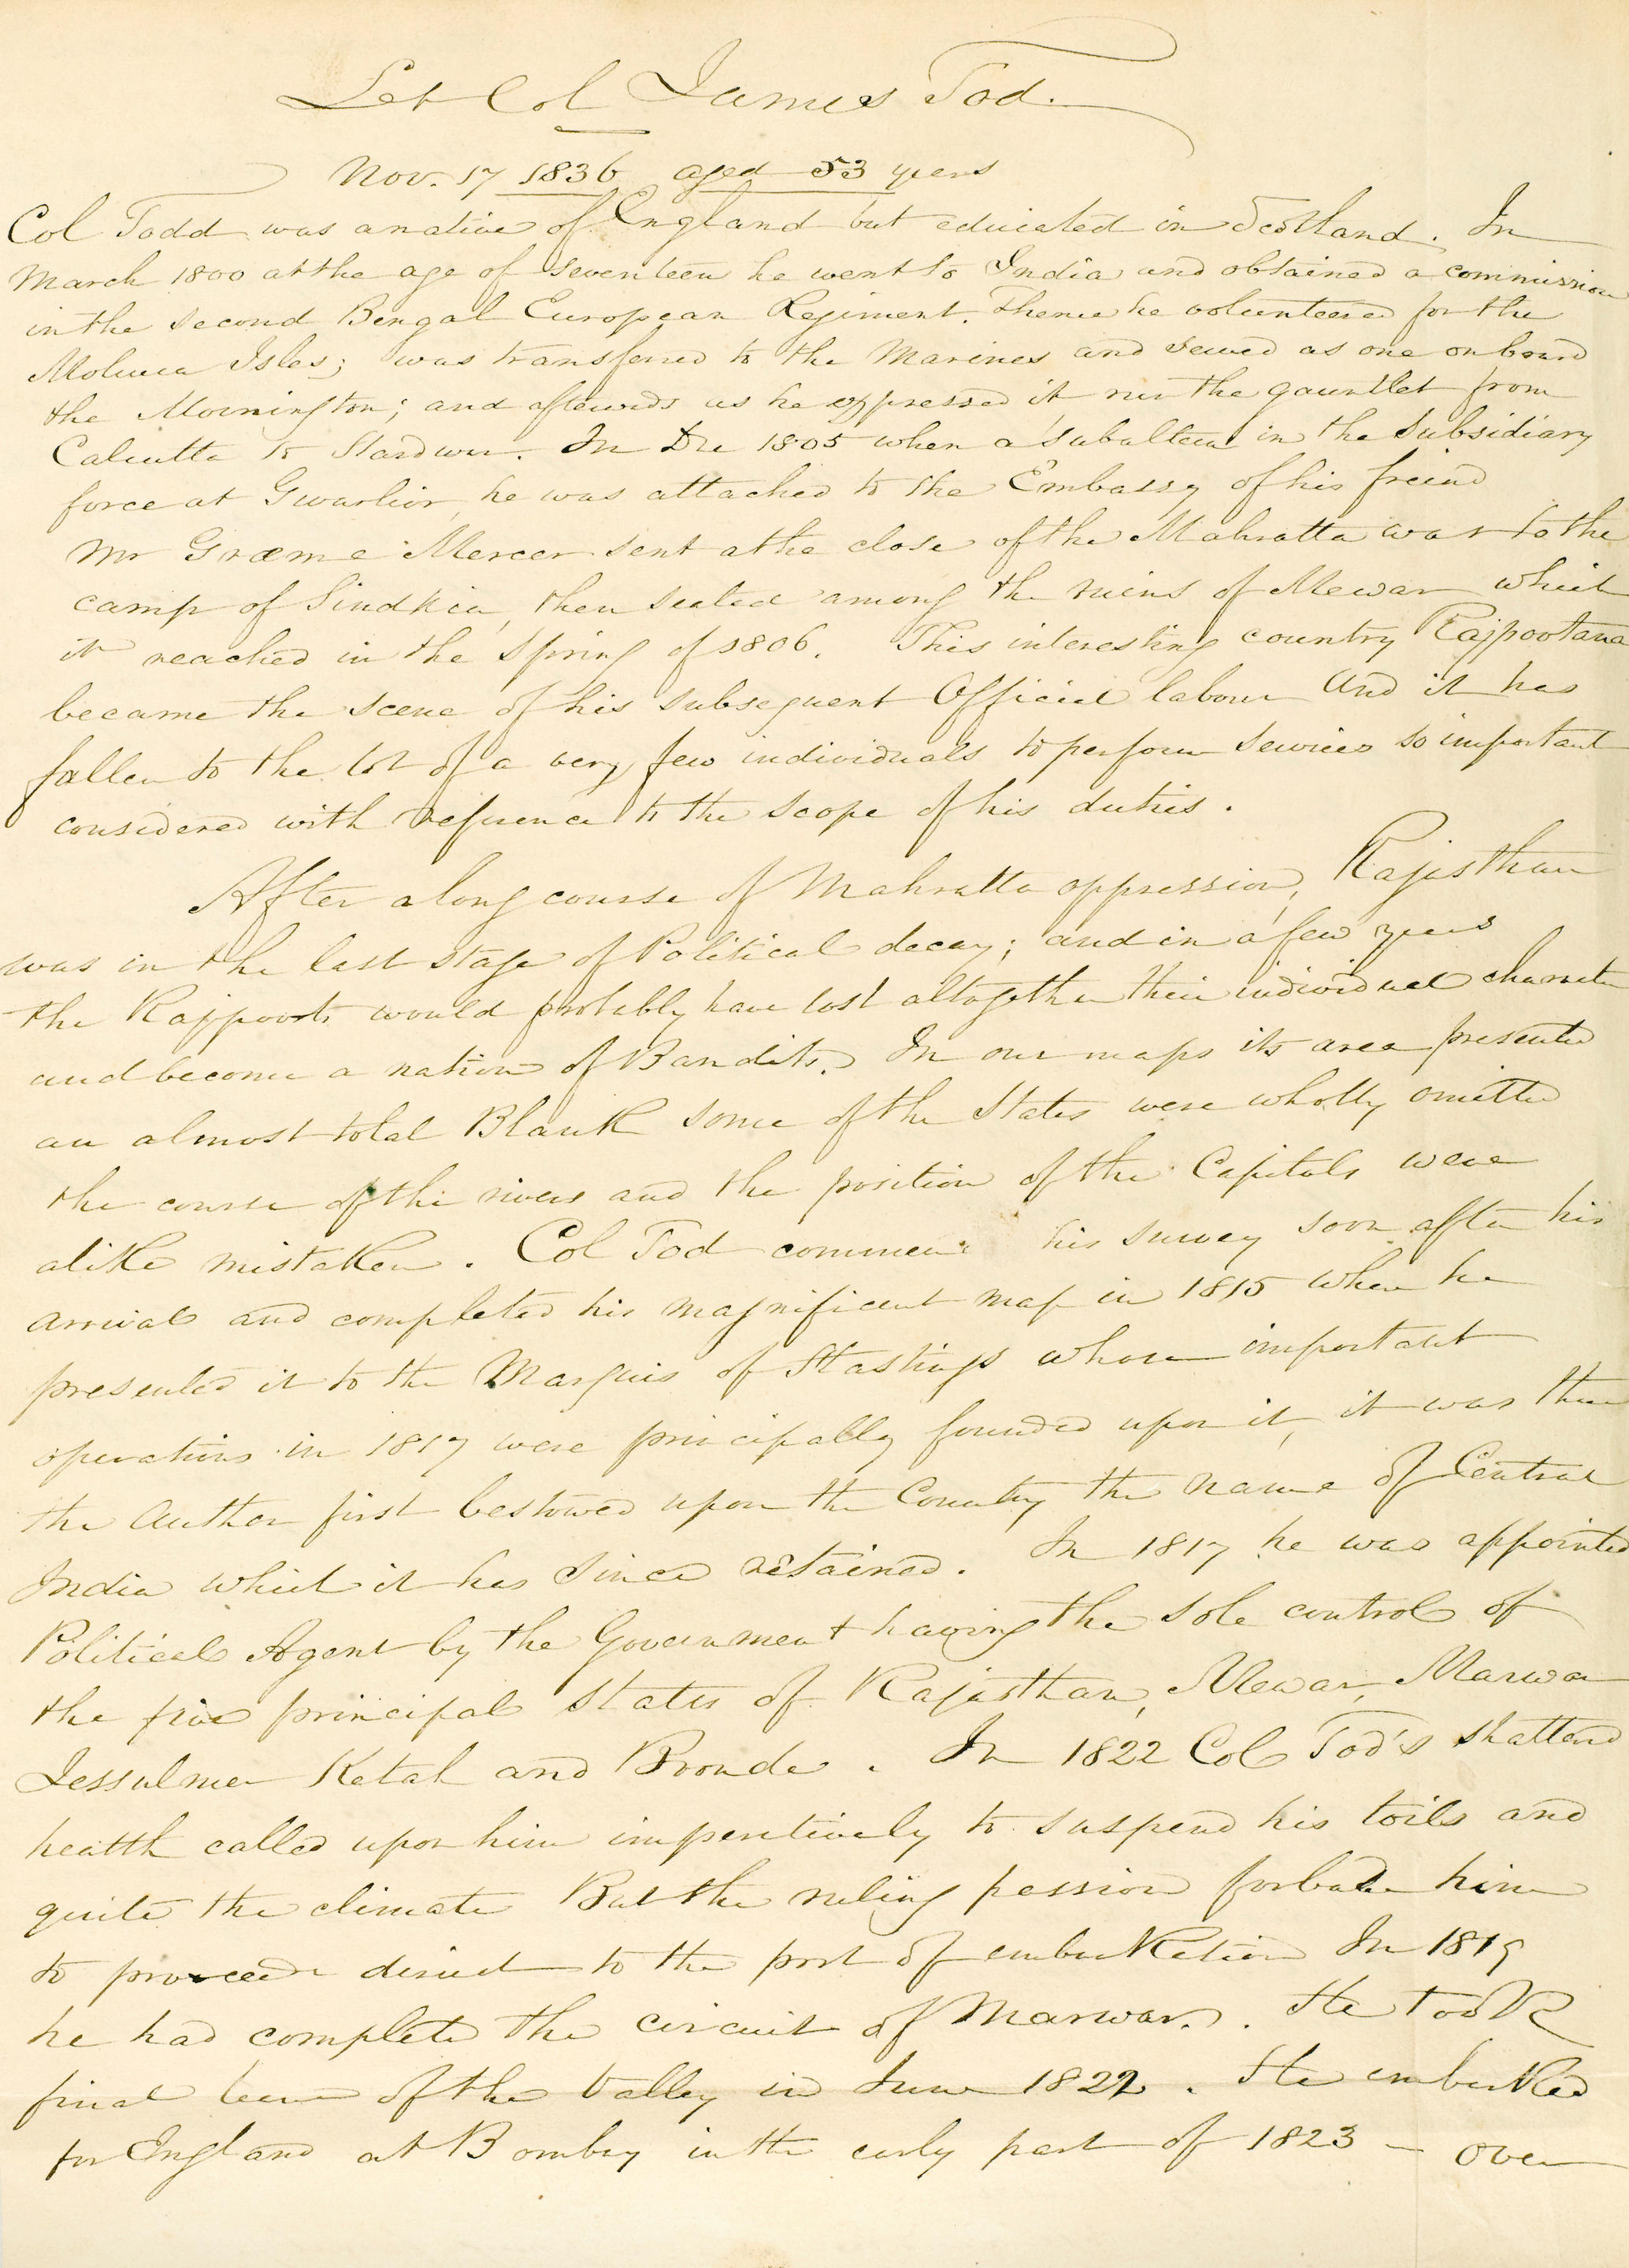 Let Col James Tod.
Nov. 17 1836 aged 53 years
Col Todd was a native of England but educated in Scotland. In
March 1800 at the age of seventeen he went to India and obtained a commission
in the second Bengal European Regiment. Thence he volunteered for the
Molucca Isles; was transferred to the Marines and served as one on board
the Mornington; and afterwards as he expressed it run the gauntlet from
Calcutta to Hardwar. In Dec 1805 when a subaltern in the Subsidiary
force at Gwarlior, he was attached to the Embassy of his freind
Mr Græme Mercer sent at the close of the Mahratta war to the
camp of Sindkia, then seated among the ruins of Mewar which
it reached in the Spring of 1806. This interesting country Rajpootana
became the scene of his subsequent Official labour and it has
fallen to the lot of a very few individuals to perform services so important
considered with reference to the scope of his duties.
After a long course of Mahratta oppression, Rajasthan
was in the last stage of Political decay; and in a few years
the Rajpoots would probably have lost altogether their individual character
and become a nation of Bandits. In our maps its area presented
an almost total Blank some of the States were wholly omitted
the course of the rivers and the position of the Capitals were
alike mistaken. Col Tod commenc his survey soon after his
arrival and completed his magnificent map in 1815 when he
presented it to the Marquis of Hastings whose important
operations in 1817 were principally founded upon it, it was then
the Author first bestowed upon the Country the name of Central
India which it has since retained. In 1817 he was appointed
Political Agent by the Government having the sole control of
the five principal States of Rajasthan, Mewar, Marwar
Jessulmer Kotah and Bonde. In 1822 Col Tod's shattered
health called upon him imperitively to suspend his toils and
quite the climate But the ruling passion forbade him
to proceede direct to the port of embarkation In 1819
he had complete the circuit of Marwar. He took
final leave of the Valley in June 1822. He embarked
for England at Bombay in the early part of 1823 – over